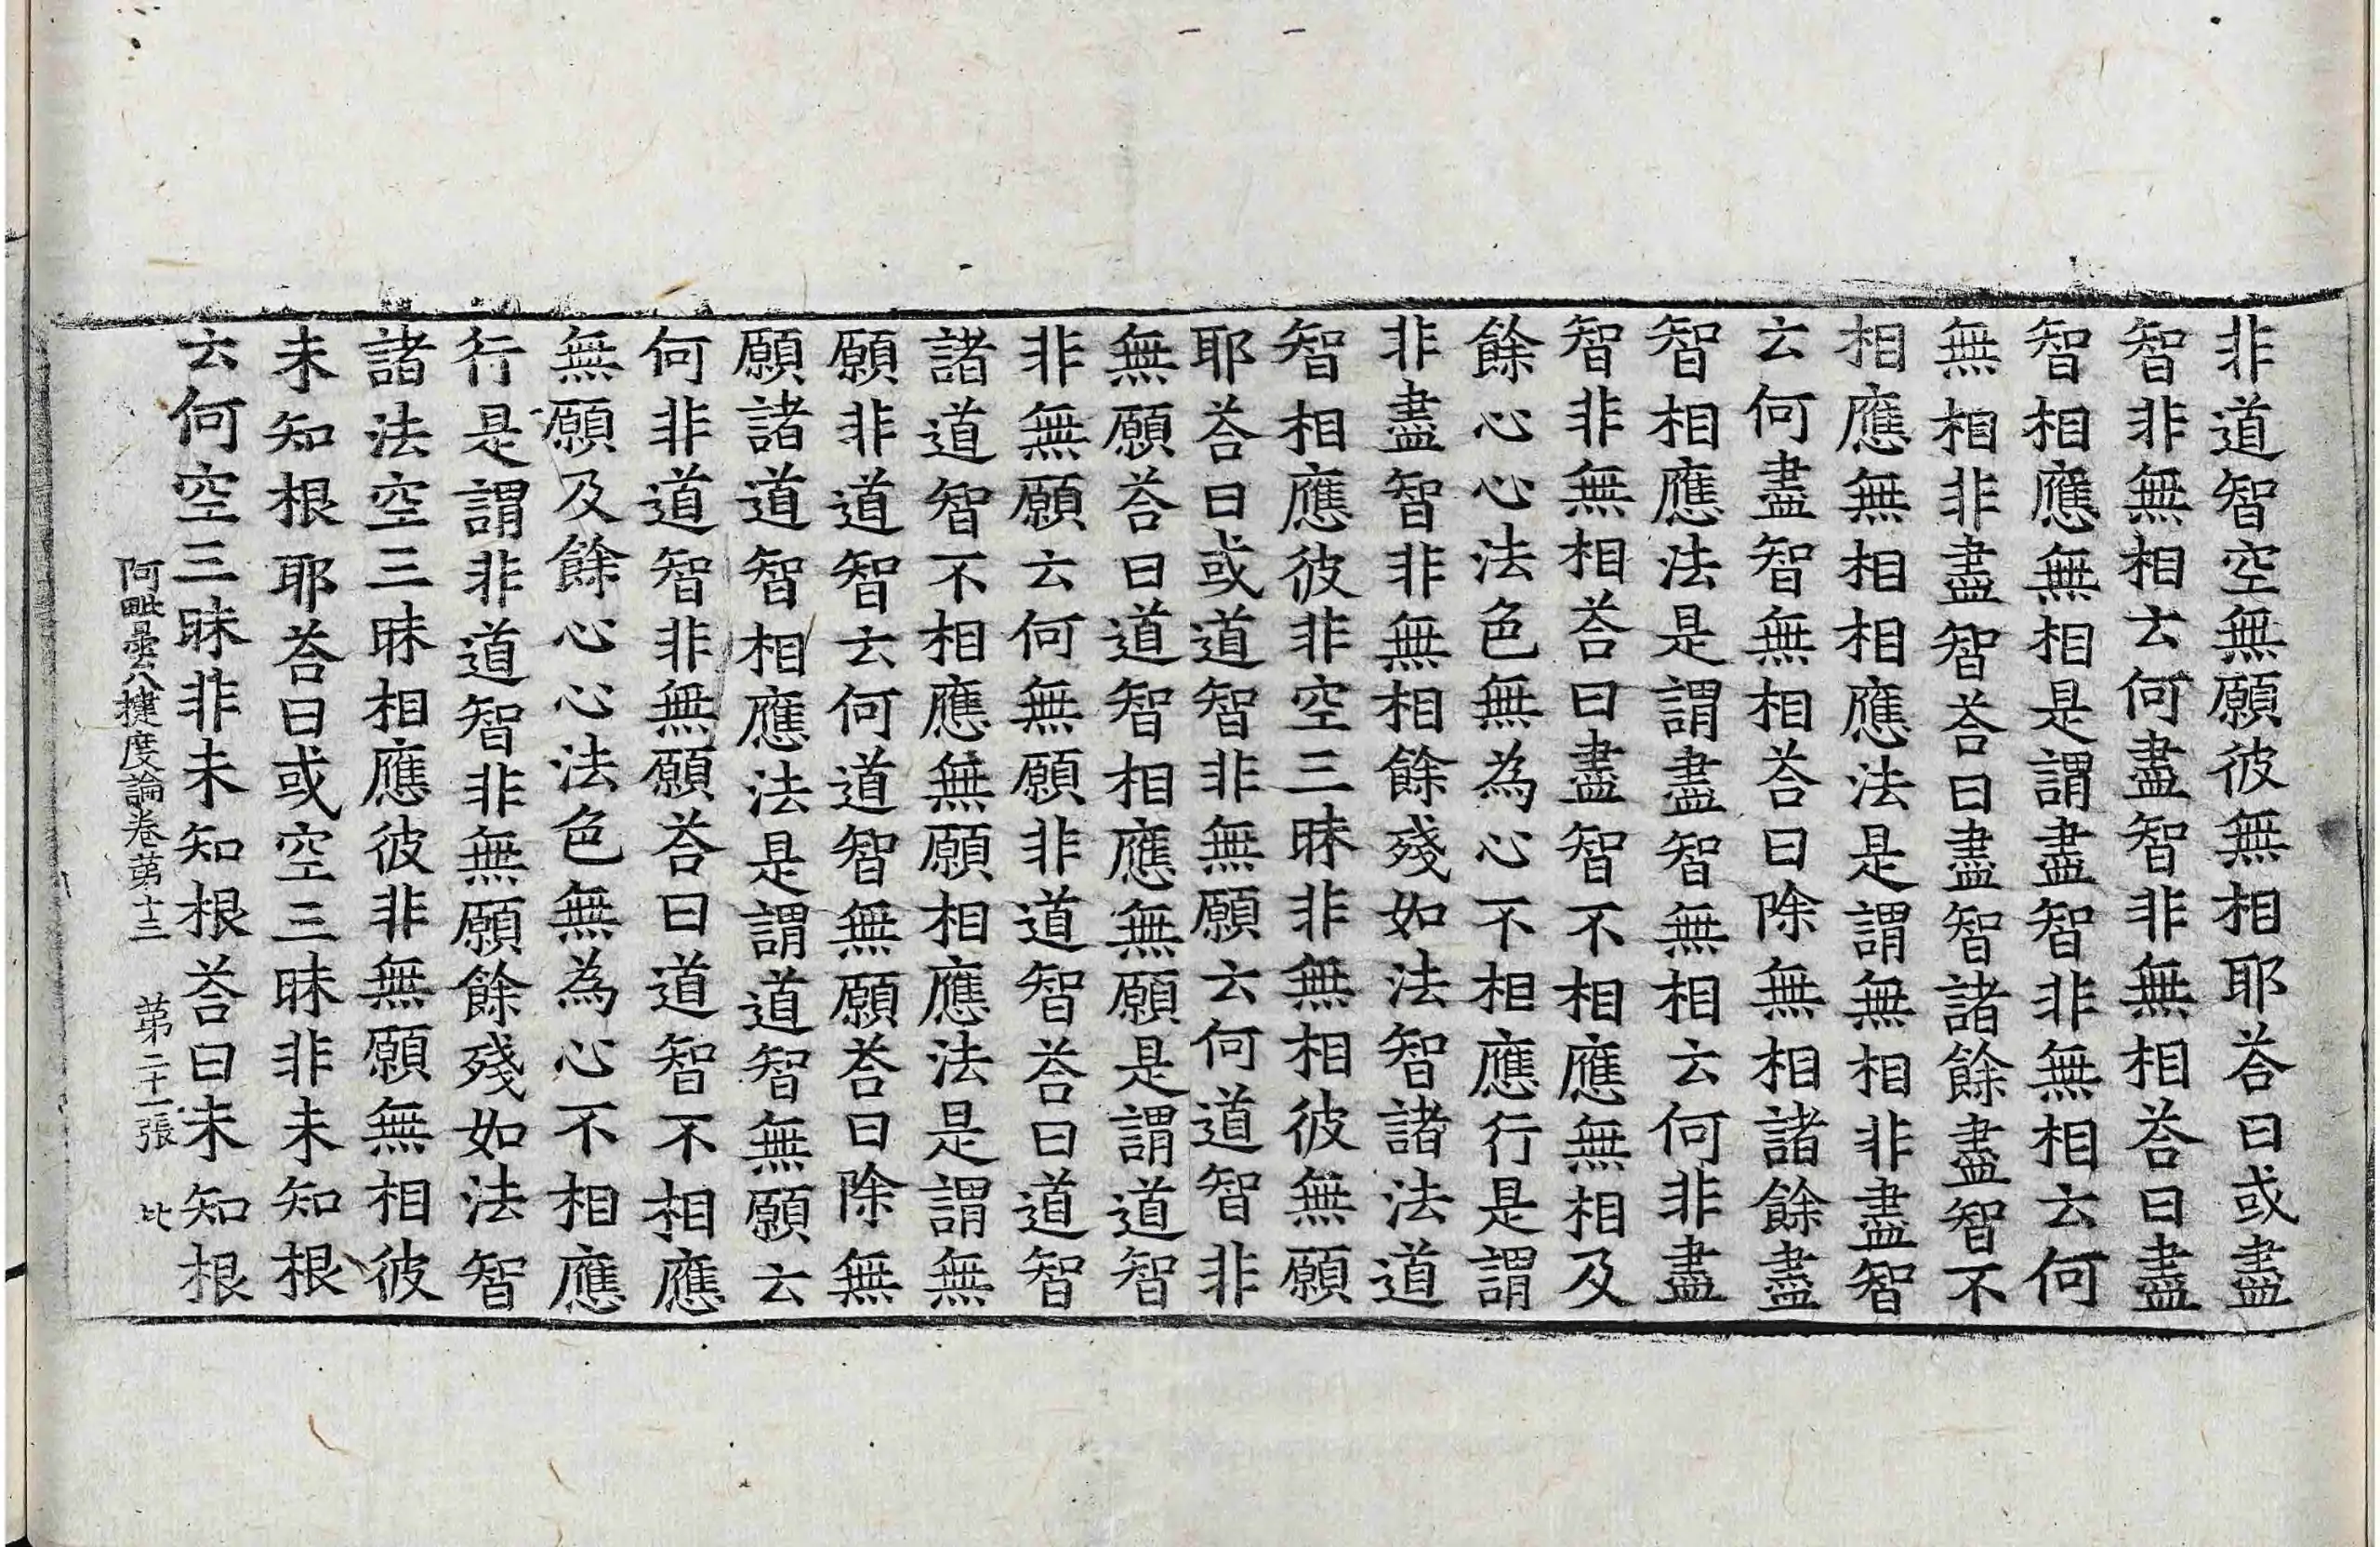 非道智空無願彼無相耶荅曰或盡
智非無相云何盡智非無相荅曰盡
智相應無相是謂盡智非無相云何
無相非盡智荅曰盡智諸餘盡智不
相應無相相應法是謂無相非盡智
云何盡智無相荅曰除無相諸餘盡
智相應法是謂盡智無相云何非盡
智非無相荅曰盡智不相應無相及
餘心心法色無為心不相應行是謂
非盡智非無相餘殘如法智諸法道
智相應彼非空三昧非無相彼無願
耶荅曰或道智非無願云何道智非
無願荅曰道智相應無願是謂道智
非無願云何無願非道智荅曰道智
諸道智不相應無願相應法是謂無
願非道智云何道智無願荅曰除無
願諸道智相應法是謂道智無願云
何非道智非無願荅曰道智不相應
無願及餘心心法色無為心不相應
行是謂非道智非無願餘殘如法智
諸法空三昧相應彼非無願無相彼
未知根耶荅曰或空三昧非未知根
云何空三昧非未知根荅曰未知根
阿毗曇八揵度論卷苐十三 苐二十一張 比